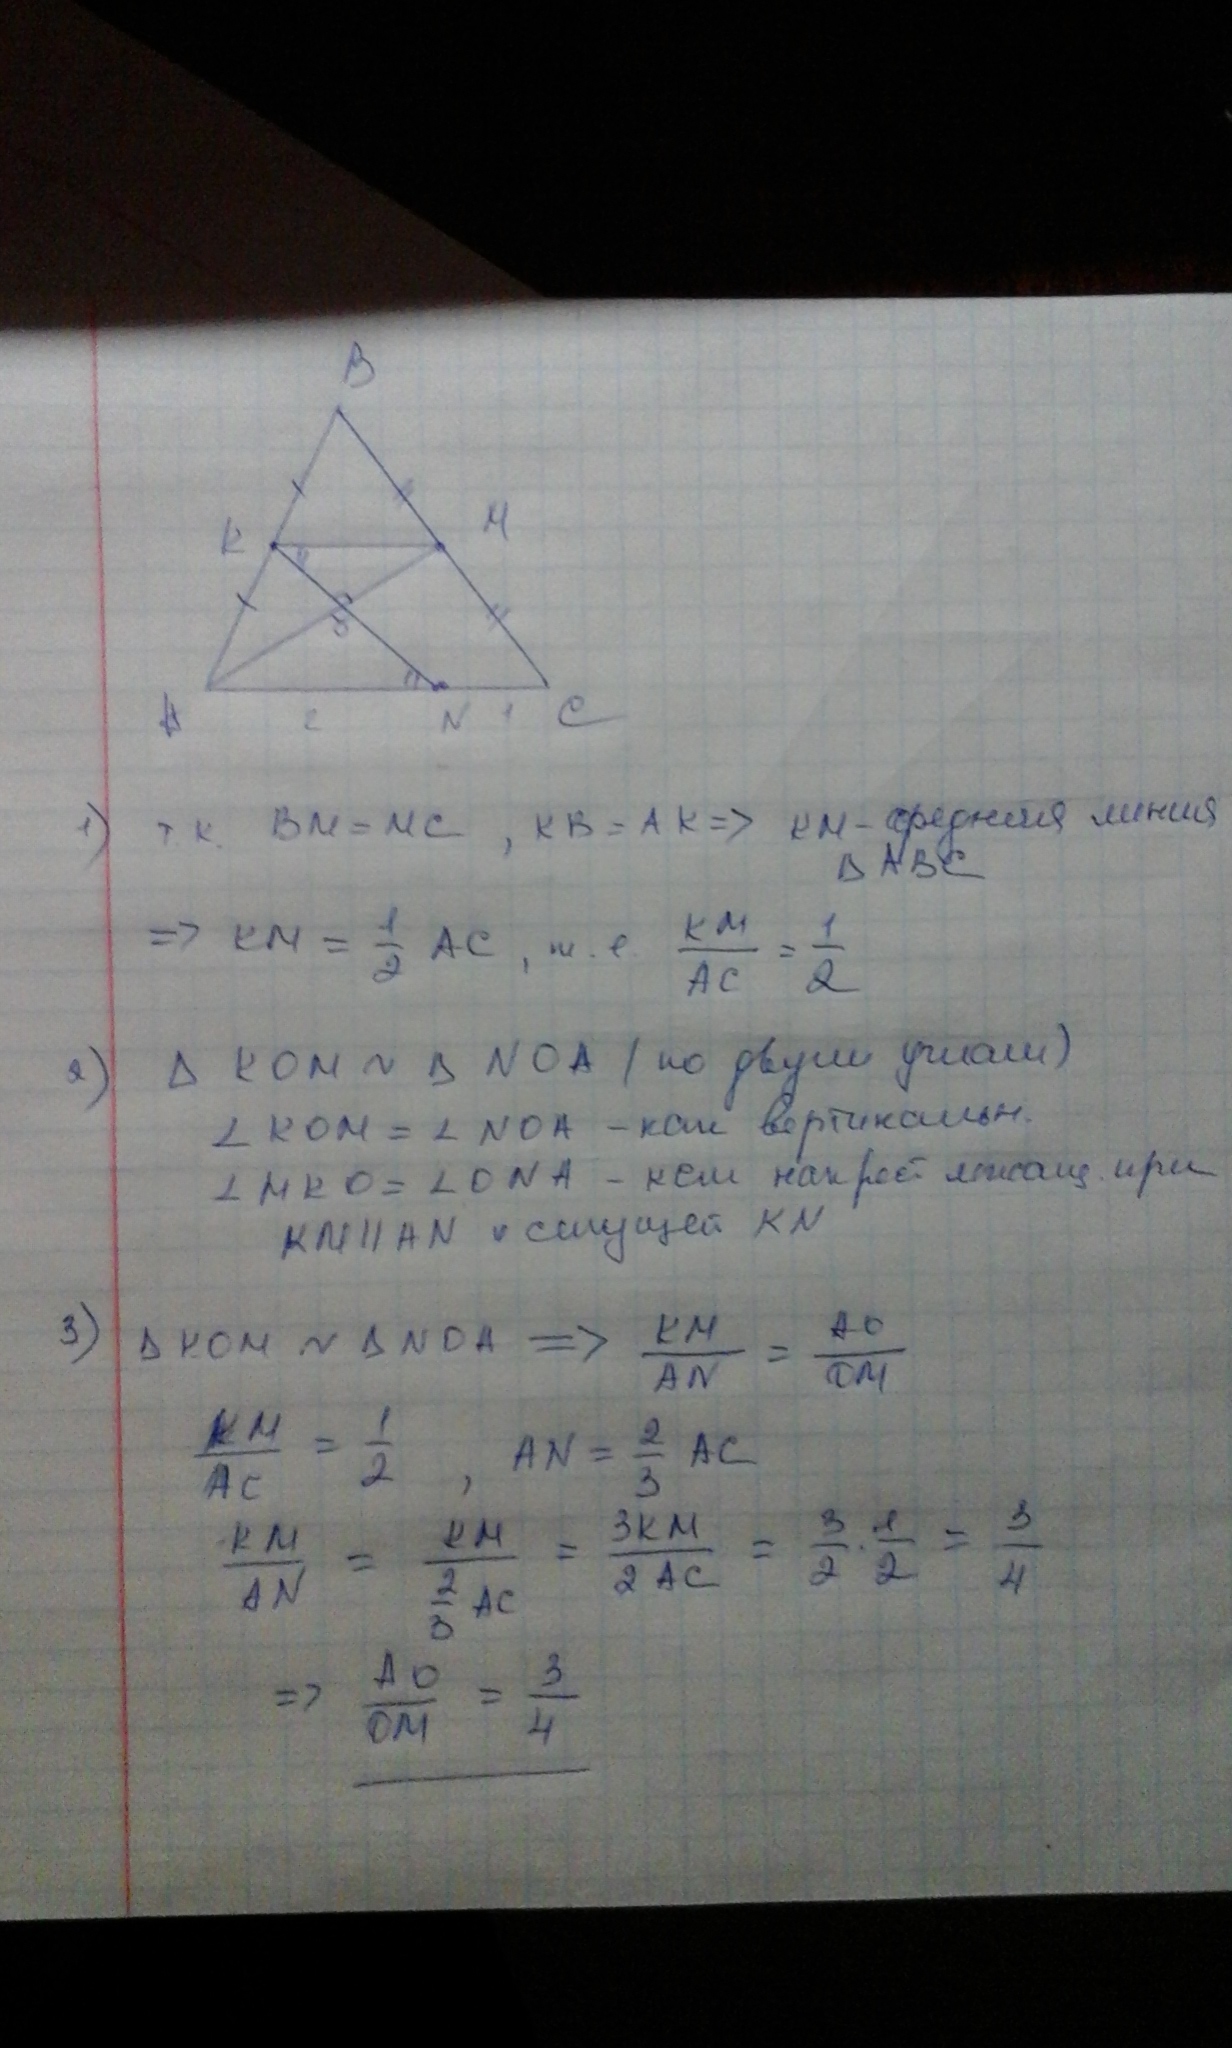 B
K M
O
A 2 N 1 C
1) т.к. BM = MC, KB = AK => KM - средняя линия
Δ ABC
=> KM = 1/2 AC, т.е. KM/AC = 1/2
2) Δ KOM ~ Δ NOA (по двум углам)
∠ KOM = ∠ NOA - как вертикальн.
∠ MKO = ∠ ONA - как накрест лежащ. при
KM || AN и секущей KN
3) Δ KOM ~ Δ NOA => KM/AN = AO/OM
KM/AC = 1/2, AN = 2/3 AC
KM/AN = KM/(2/3 AC) = 3KM/2AC = 3/2 · 1/2 = 3/4
=> AO/OM = 3/4